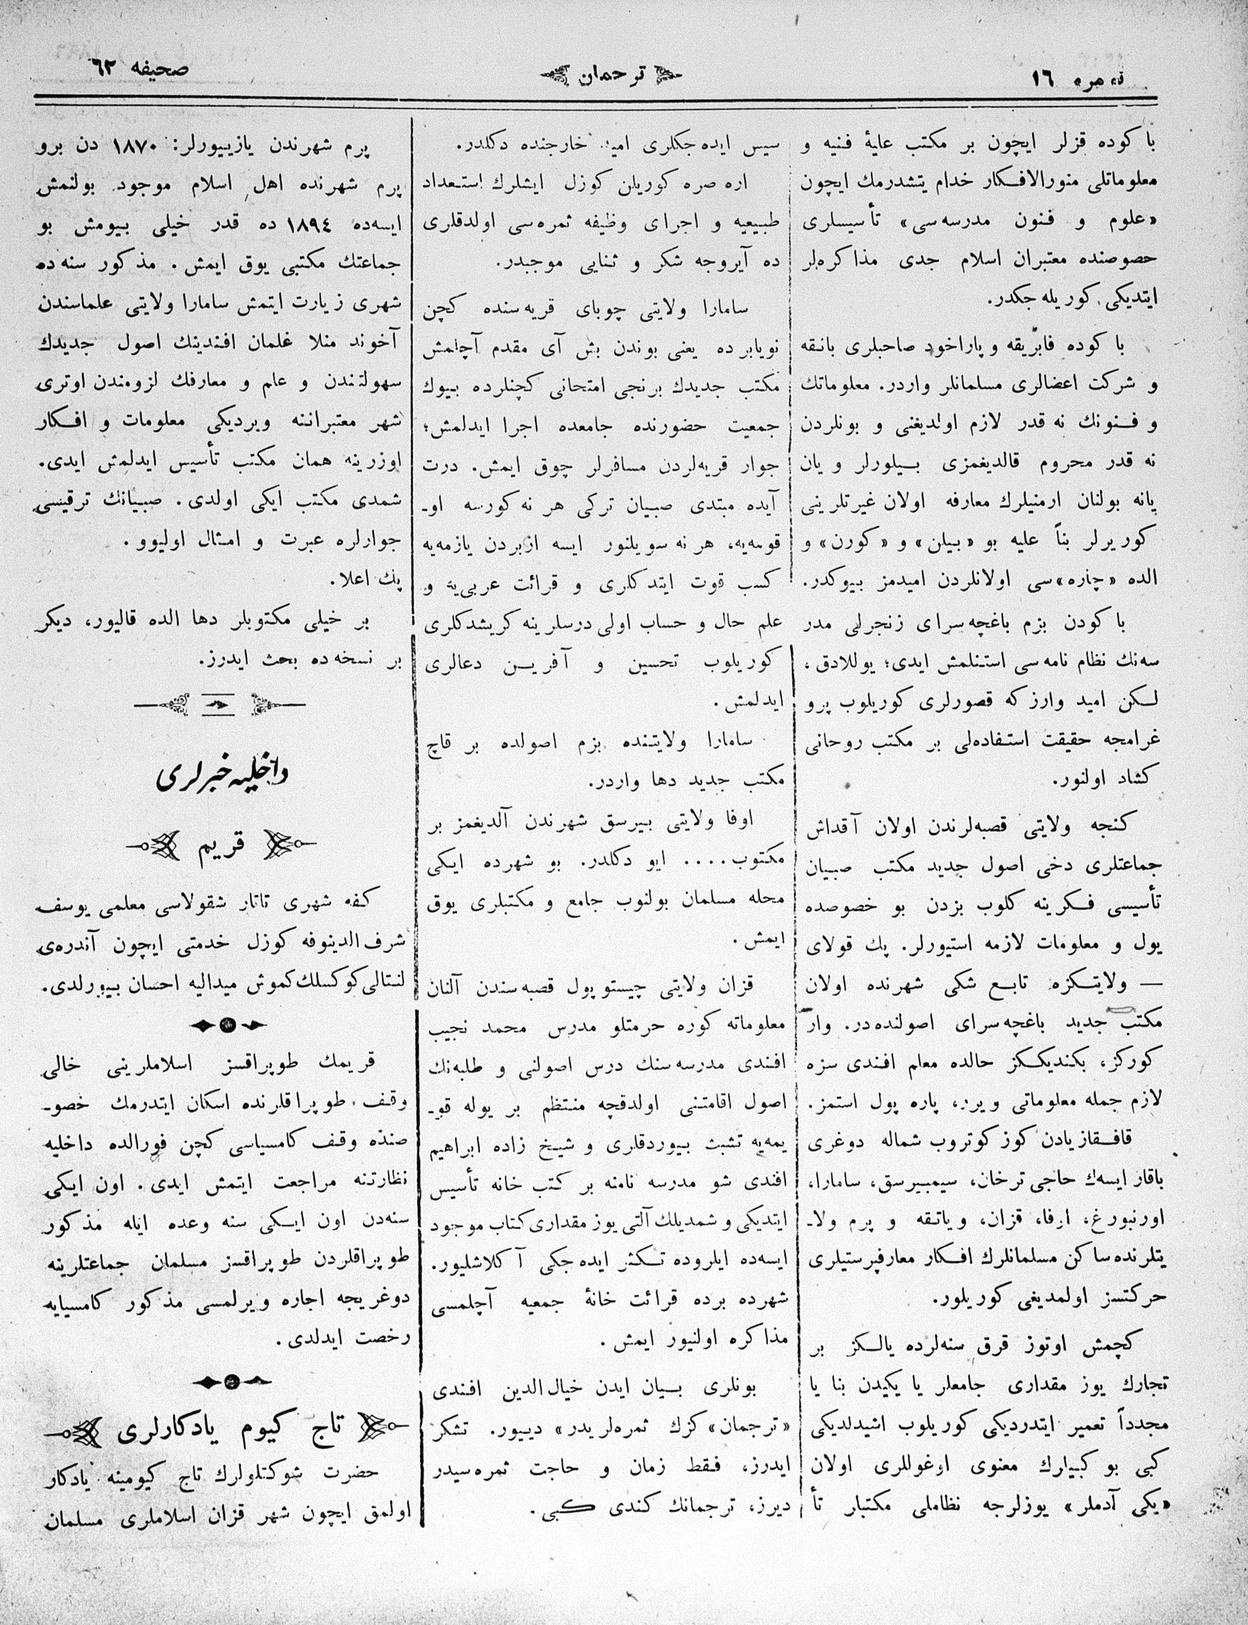 نومره ١٦
ترجمان
صحیفه ٦٢
باكوده قزلر ایچون بر مكتب عالیهٔ فنیه و
معلوماتلی منورالافكار خدام یتشدرمك ایچون
«علوم و فنون مدرسه‌سی» تأسیسلری
حصوصنده معتبران اسلام جدی مذاكره‌لر
ایتدیكی كوریله‌جكدر.
باكوده فابریقه و پاراخود صاحبلری بانقه
و شركت اعضالری مسلمانلر واردر. معلوماتك
و فنونك نه قدر لازم اولدیغنی و بونلردن
نه قدر محروم قالدیغمزی بیلورلر و یان
یانه بولنان ارمنیلرك معارفه اولان غیرتلرینی
كوریرلر بناً علیه بو «بیلن» و «كورن» و
الده «چاره»سی اولانلردن امیدمز بیوكدر.
باكودن بزم باغچه‌سرای زنجرلی مدر
سه‌نك نظام نامه‌سی استنلمش ایدی؛ یوللادق،
لكن امید وارز كه قصورلری كوریلوب پرو
غرامجه حقیقت استفاده‌لی بر مكتب روحانی
كشاد اولنور.
كنجه ولایتی قصبه‌لرندن اولان آقداش
جماعتلری دخی اصول جدید مكتب صبیان
تأسیسی فكرینه كلوب بزدن بو خصوصده
یول و معلومات لازمه استیورلر. پك قولای
— ولایتكزه تابع شكی شهرنده اولان
مكتب جدید باغچه‌سرای اصولنده‌در. وار
كوركز، بكندیككز حالده معلم افندی سزه
لازم جمله معلوماتی ویرر، پاره پول استمز.
قافقازیادن كوز كوتروب شماله دوغری
باقار ایسه‌ك حاجی ترخان، سیمبیرسق، سامارا،
اورنبورغ، ارفا، قزان، ویاتقه و پرم ولا-
یتلرنده ساكن مسلمانلرك افكار معارفپرستیلری
حركتسز اولمدیغی كوریلور.
كچمش اوتوز قرق سنه‌لرده یالكز بر
تجارك یوز مقداری جامعلر یا یكیدن بنا یا
مجدداً تعمیر ایتدردیكی كوریلوب اشیدلدیكی
كبی بو كبیلرك معنوی اوغوللری اولان
«یكی آدملر» یوزلرجه نظاملی مكتبلر تأ
سیس ایده‌جكلری امید خارجنده دكلدر.
اره صره كوریلن كوزل ایشلرك استعداد
طبیعیه و اجرای وظیفه ثمره‌سی اولدقلری
ده آیروجه شكر و ثنایی موجبدر.
سامارا ولایتی چوبای قریه‌سنده كچن
نویابرده یعنی بوندن بش آی مقدم آچلمش
مكتب جدیدك برنجی امتحانی كچنلرده بیوك
جمعیت حضورنده جامعده اجرا ایدلمش؛
جوار قریه‌لردن مسافرلر چوق ایمش. درت
آیده مبتدی صبیان تركی هر نه كورسه او-
قومه‌یه، هر نه سویلنور ایسه ازبردن یازمه‌یه
كسب قوت ایتدكلری و قرائت عربی‌یه و
علم حال و حساب اولی درسلرینه كریشدكلری
كوریلوب تحسین و آفرین دعالری
ایدلمش.
سامارا ولایتنده بزم اصولده بر قاچ
مكتب جدید دها واردر.
اوفا ولایتی بیرسق شهرندن آلدیغمز بر
مكتوب.... ایو دكلدر. بو شهرده ایكی
محله مسلمان بولنوب جامع و مكتبلری یوق
ایمش.
قزان ولایتی چیستوپول قصبه‌سندن آلنان
معلوماته كوره حرمتلو مدرس محمد نجیب
افندی مدرسه‌سنك درس اصولنی و طلبه‌نك
اصول اقامتنی اولدقچه منتظم بر یوله قو-
یمه‌یه تشبث بیوردقلری و شیخ زاده ابراهیم
افندی شو مدرسه نامنه بر كتب خانه تأسیس
ایتدیكی و شمدیلك آلتی یوز مقداری كتاب موجود
ایسه‌ده ایلروده تكثر ایده‌جكی آكلاشلیور.
شهرده برده قرائت خانهٔ جمعیه آچلمسی
مذاكره اولنیور ایمش.
بونلری بیان ایدن خیال الدین افندی
«ترجمان» كزك ثمره‌لریدر» دییور. تشكر
ایدرز، فقط زمان و حاجت ثمره‌سیدر
دیرز، ترجمانك كندی كبی.
پرم شهرندن یازییورلر: ١٨٧٠ دن برو
پرم شهرنده اهل اسلام موجود بولنمش
ایسه‌ده ١٨٩٤ ده قدر خیلی بیومش بو
جماعتك مكتبی یوق ایمش. مذكور سنه‌ده
شهری زیارت ایتمش سامارا ولایتی علماسندن
آخوند منلا غلمان افندینك اصول جدیدك
سهولتندن و علم و معارفك لزومندن اوتری
شهر معتبراننه ویردیكی معلومات و افكار
اوزرینه همان مكتب تأسیس ایدلمش ایدی.
شمدی مكتب ایكی اولدی. صبیانك ترقیسی
جوارلره عبرت و امثال اولیوو.
پك اعلا.
بر خیلی مكتوبلر دها الده قالیور، دیكر
بر نسخه‌ده بحث ایدرز.
داخلیه خبرلری
قریم
كفه شهری تاتار شقولاسی معلمی یوسف
شرف الدینوفه كوزل خدمتی ایچون آندره‌ی
لنتالی كوكسلك كموش میدالیه احسان بیورلدی.
قریمك طوپراقسز اسلاملرینی خالی
وقف طوپراقلرنده اسكان ایتدرمك خصو-
صنده وقف كامسیاسی كچن فورالده داخلیه
نظارتنه مراجعت ایتمش ایدی. اون ایكی
سنه‌دن اون ایكی سنه وعده ایله مذكور
طوپراقلردن طوپراقسز مسلمان جماعتلرینه
دوغریجه اجاره ویرلمسی مذكور كامسیایه
رخصت ایدلدی.
تاج كیوم یادكارلری
حضرت شوكتلولرك تاج كیومینه یادكار
اولمق ایچون شهر قزان اسلاملری مسلمان